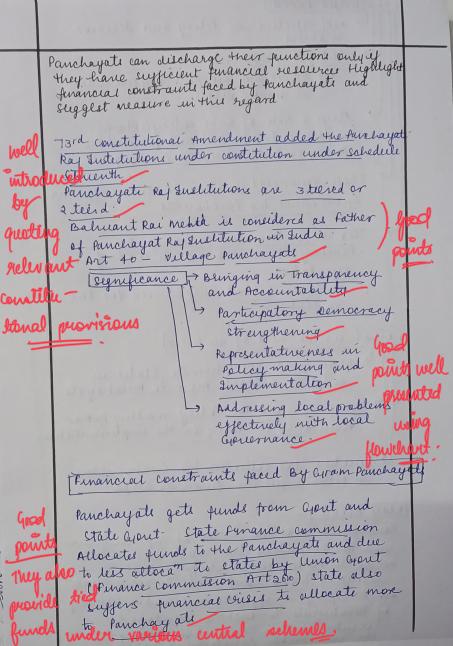 Panchayats can discharge their functions only if
they have sufficient financial resources Highlight
financial constraints faced by Panchayats and
suggest measure in this regard
73rd Constitutional Amendment added the Panchayat
Raj Institutions under constitution under schedule
Eleventh
Panchayati Raj Institutions are 3 tiered or
2 tierd.
Balwant Rai Mehta is considered as Father
of Panchayat Raj Institution in India
Art 40 - Village Panchayats
well
introduced
by
quoting
relevant
constitu-
tional provisions
Good
points
Significance
Bringing in Transparency
and Accountability
Participatory Democracy
strengthening
Representativeness in
Policy making and
Implementation
Addressing local problems
effectively with local
Governance.
Good
points well
presented
using
flowchart.
Financial constraints faced By Gram Panchayats
Panchayats gets funds from Govt and
State Govt. State Finance commission
Allocates funds to the Panchayats and due
to less allocan to states by Union Govt
(Finance Commission Art 280) state also
suffers financial crisis to allocate more
to Panchayats
Good
points
They also
provide tied
funds under various central schemes.